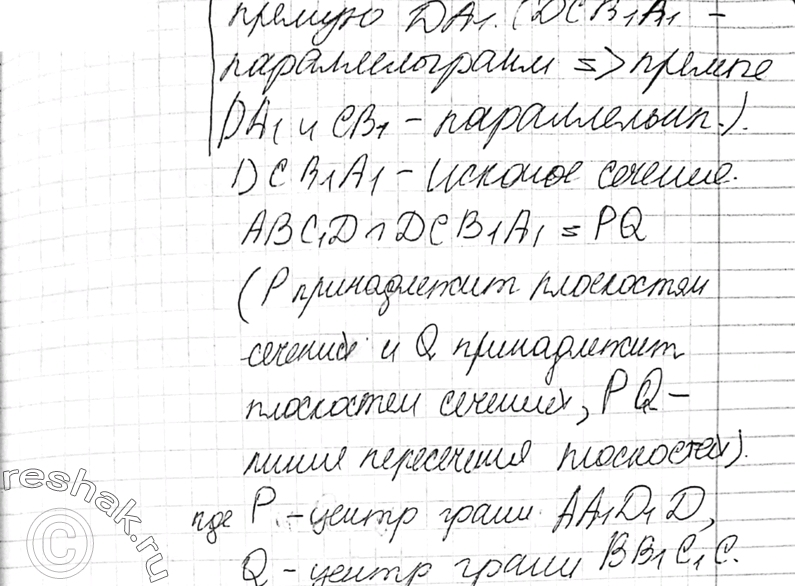 прямую DA₁. (DCB₁A₁ –
параллелограмм => прямые
DA₁ и CB₁ – параллельны.).
DCB₁A₁ – искомое сечение.
ABC₁D ∩ DCB₁A₁ = PQ
(P принадлежит плоскостям
сечений и Q принадлежит
плоскостям сечений, PQ –
линия пересечения плоскостей).
где P – центр грани AA₁D₁D,
Q – центр грани BB₁C₁C.
reshak.ru